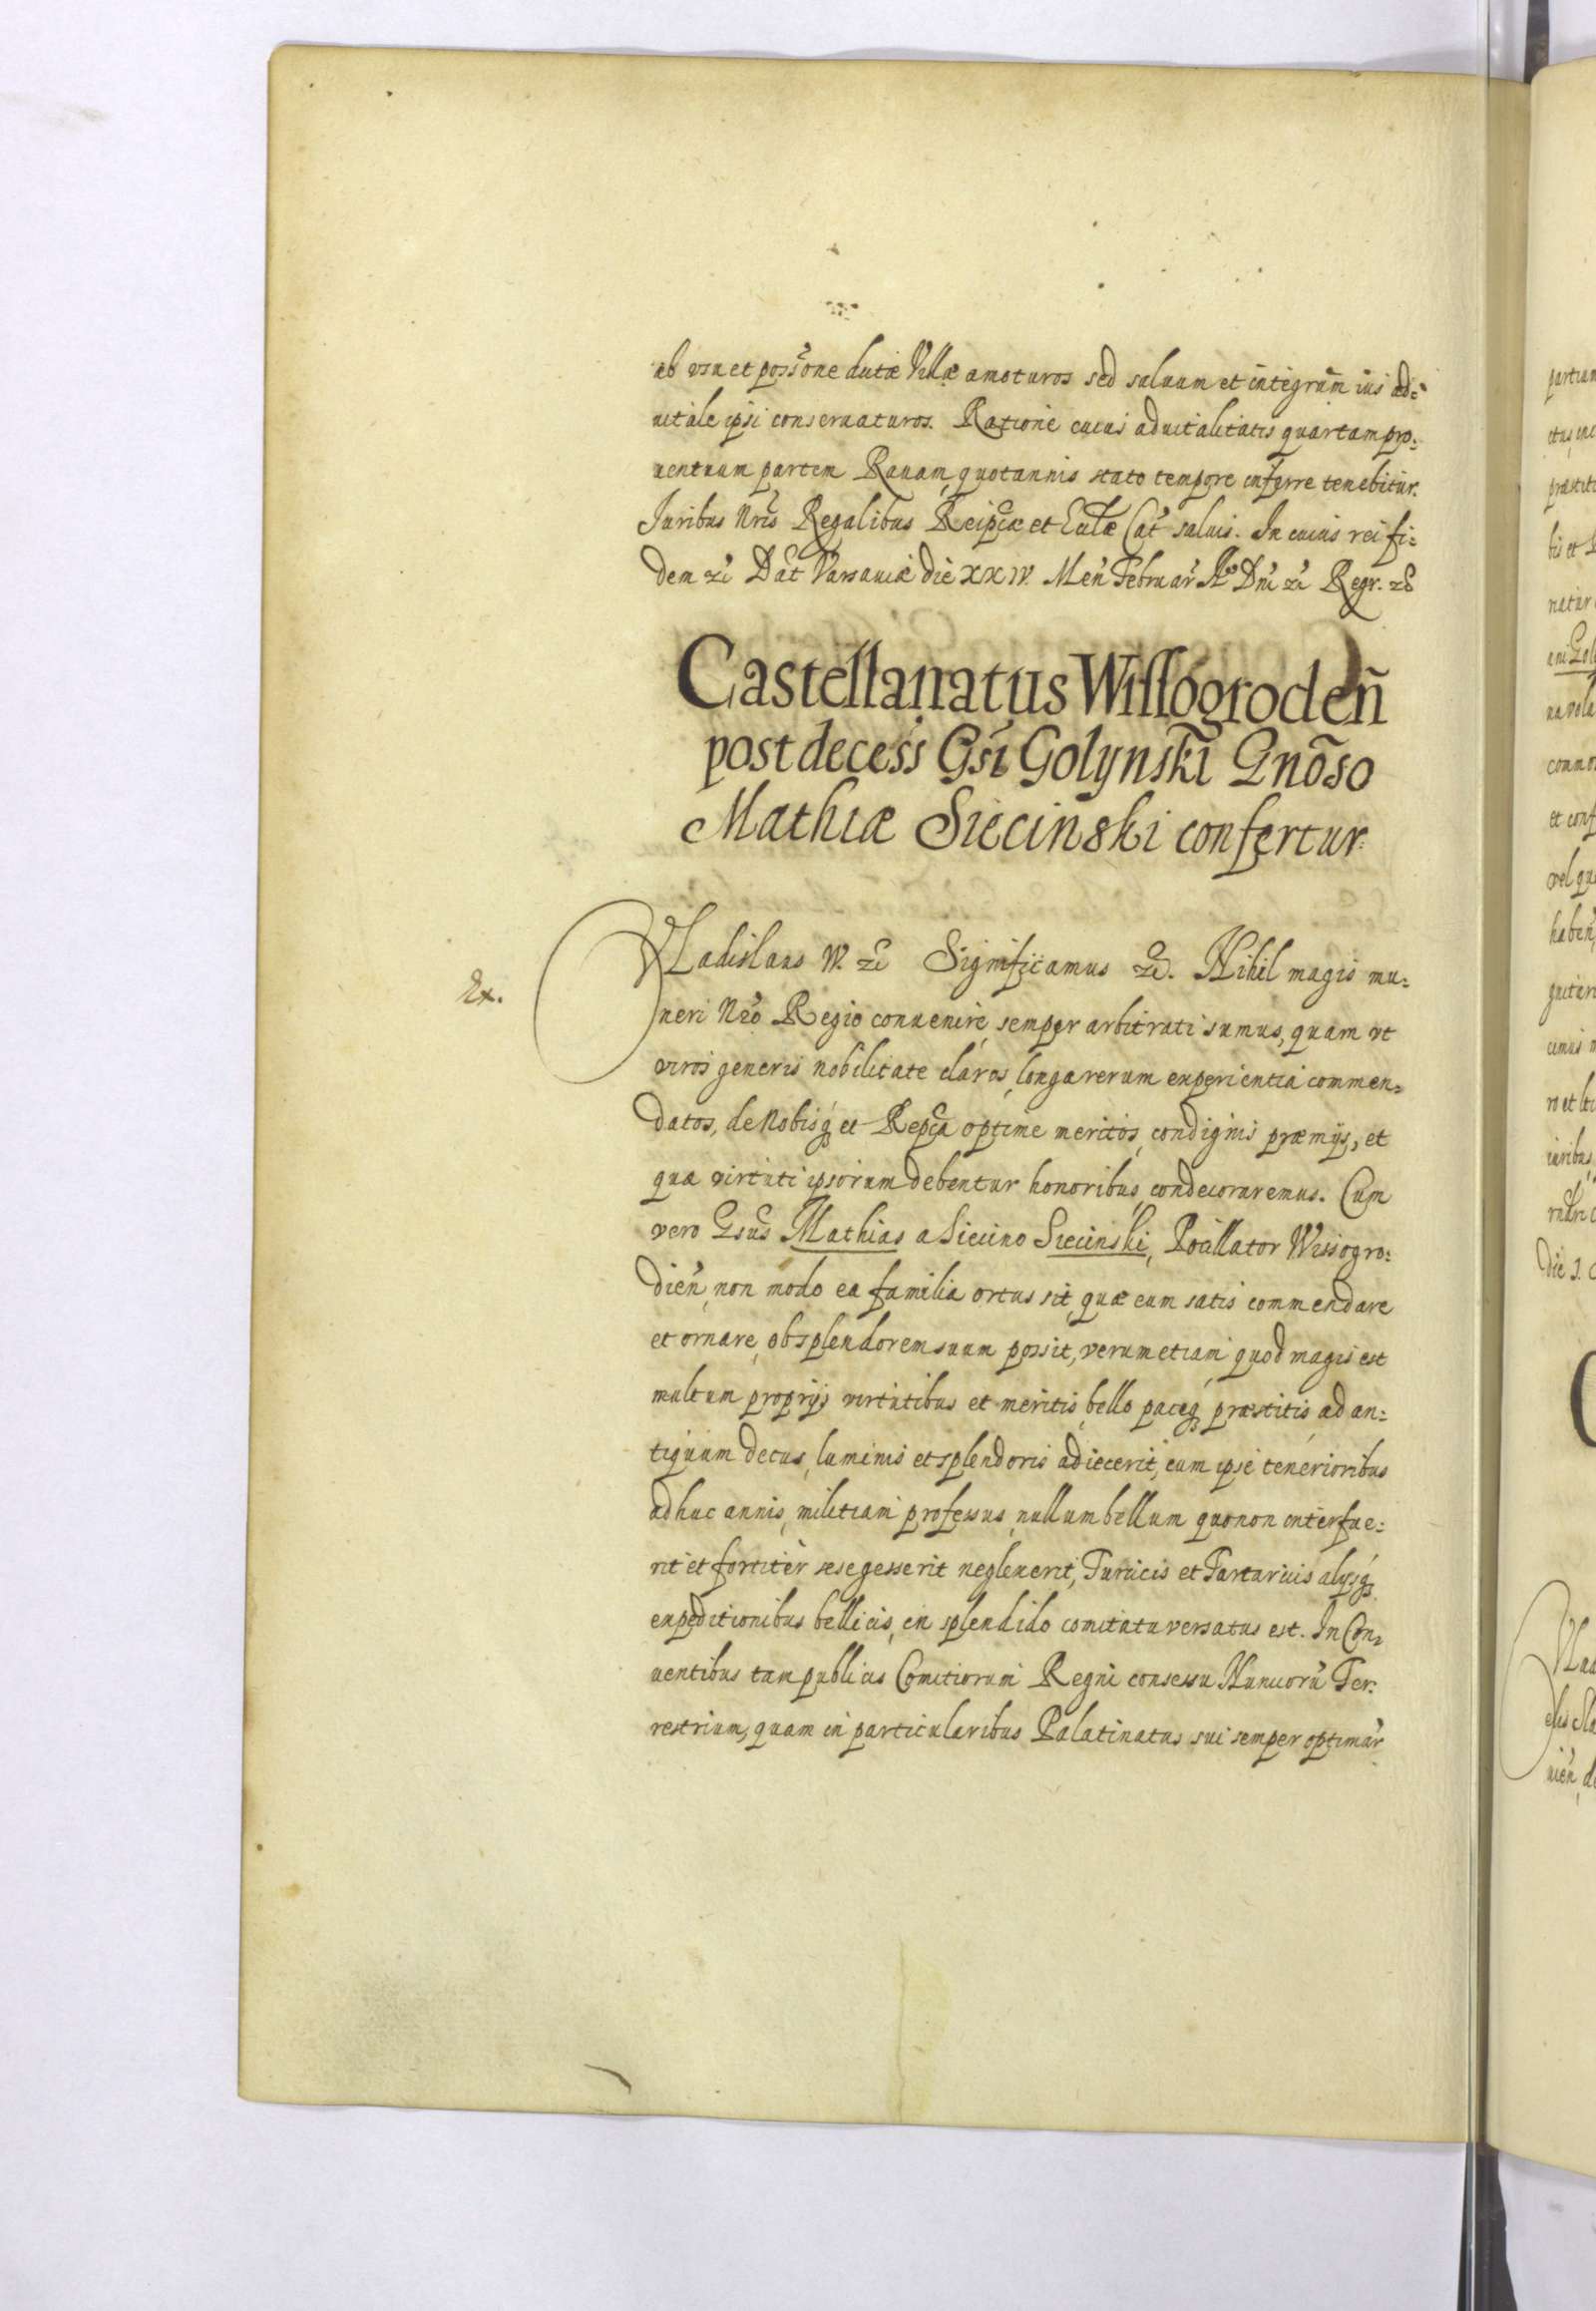 ab usu et possõne dictæ Villæ amoturos sed saluum et integrum ius ad=
uitale ipsi conseruaturos. Ratione cuius aduitalitatis quartam pro=
uentuum partem Rauam quotannis stato tempore inferre tenebitur.
Juribus Nris Regalibus Reipcæ et Eccłæ Cat saluis. In cuius rei fi=
dem zc Dat Varsauiæ die XXIV. Men Februar Ao Dni zc Regr. zc
Castellanatus Wissogroden̄
post decess Gsi Golynski Gnõso
Mathiæ Siecinski confertur.
Ex.
VLadislaus IV. zc Significamus zc. Nihil magis mu=
neri Nro Regio conuenire, semper arbitrati sumus, quam vt
viros generis nobilitate claros, longa rerum experientia commen=
datos, de Nobisq et Repca optime meritos, condignis præmijs, et
quæ virtuti ipsorum debentur honoribus, condecoraremus. Cum
vero Gsus Mathias a Siecino Siecinski, Pocillator Wissogro=
dien, non modo ea familia ortus sit, quæ eum satis commendare
et ornare, ob splendorem suum possit, verum etiam quod magis est
multum proprijs virtutibus et meritis, bello paceq præstitis, ad an=
tiquum decus, luminis et splendoris adiecerit, cum ipse tenerioribus
adhuc annis, militiam professus, nullum bellum quo non interfue=
rit et fortiter sese gesserit neglexerit, Turcicis et Tartaricis alijsq
expeditionibus bellicis, in splendido comitatu versatus est. In Con=
uentibus tam publicis Comitiorum Regni consessu Nunciorũ Ter=
restrium, quam in particularibus Palatinatus sui semper optimar